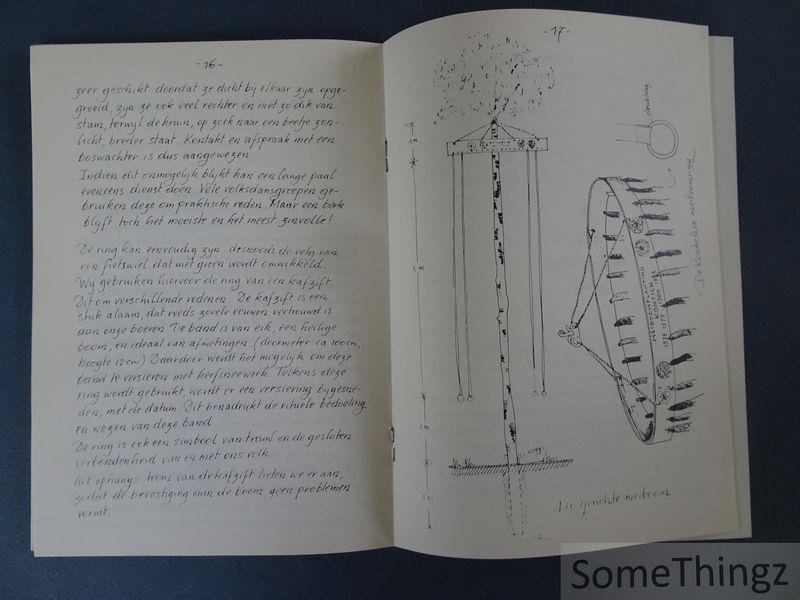 - 16 -
zeer geschikt doordat ze dicht bij elkaar zijn opge-
groeid, zijn ze ook veel rechter en niet zo dik van
stam, terwijl de kruin, op zoek naar een beetje zon-
licht, breder staat. Kontakt en afspraak met een
boswachter is dus aangewezen
Indien dit onmogelijk blijkt kan een lange paal
eveneens dienst doen. Vele volksdansgroepen ge-
bruiken deze om praktische reden. Maar een berk
blijft toch het mooiste en het meest zinvolle!
De ring kan eenvoudig zijn. desnoods de velg van
een fietswiel dat met groen wordt omwikkeld.
Wij gebruiken hiervoor de ring van een kafzift.
Dit om verschillende redenen. De kafzift is een
stuk alaam, dat reeds zovele eeuwen vertrouwd is
aan onze boeren. De band is van eik, een heilige
boom, en ideaal van afmetingen (doormeter ca 100cm,
hoogte 12cm) Daardoor wordt het mogelijk om deze
band te versieren met kerfsneewerk. Telkens deze
ring wordt gebruikt, wordt er een versiering bijgesne-
den, met de datum. Dit benadrukt de rituele bedoeling
en wezen van deze band.
De ring is ook een simbool van trouw en de gesloten
verbondenheid van en met ons volk.
Het ophangs teem van de kafzift lieten we er aan,
zodat de bevestiging aan de boom geen problemen
vormt.
- 17 -
De Kontichse meiboomring
MEIBOOMPLANTING
KONTICH
De gerichte meiboom
SomeThingz